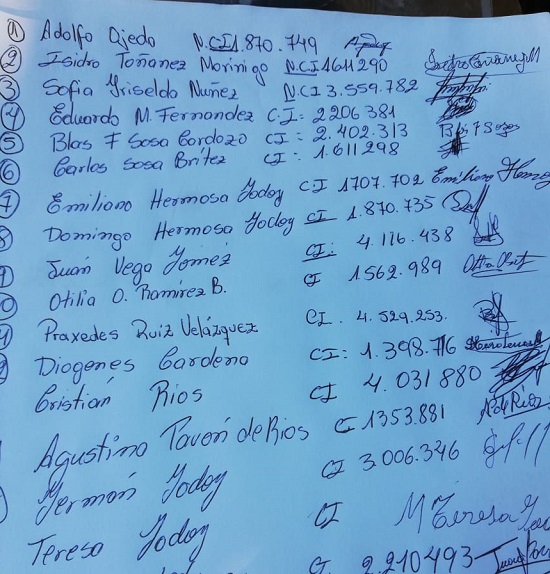 1 Adolfo Ojeda N.CI 1.870.749
2 Isidro Toñanez Morinigo N.CI 1611290
3 Sofia Griselda Nuñez N.CI 3.559.782
4 Eduardo M. Fernandez C.I: 2206381
5 Blas F Sosa Cardozo CI: 2.402.313 Blas F Sosa
6 Carlos Sosa Britez CI: 1.611298
7 Emiliano Hermosa Godoy CI 1707.702 Emiliano
8 Domingo Hermosa Godoy CI 1.870.735
9 Juan Vega Gomez CI: 4.116.438
Otilia O. Ramirez B. CI 1562.989
Praxedes Ruiz Velázquez CI. 4.529.253.
Diogenes Cardena CI: 1.398.716
Cristián Rios CI 4.031880
Agustina Pavón de Rios CI 1353.881 A de Rios
Germán Godoy CI 3.006.346
Teresa Godoy CI M Teresa
CI 2.210493